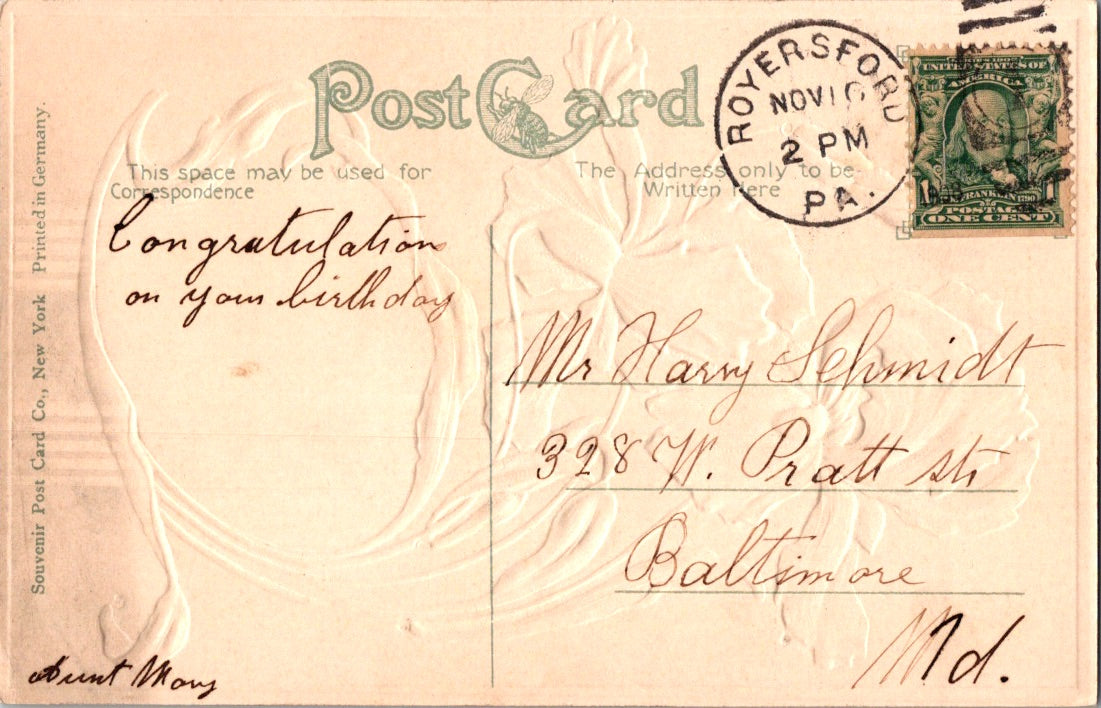 Post Card
This space may be used for
Correspondence
The Address only to be
Written Here
ROYERSFORD
NOV 10
2 PM
PA.
SERIES 1902
UNITED STATES OF
AMERICA
FRANKLIN
1 1
POSTAGE
ONE CENT
Congratulation
on your birthday
Aunt Mary
Mr Harry Schmidt
328 W. Pratt str
Baltimore
Md.
Souvenir Post Card Co., New York Printed in Germany.